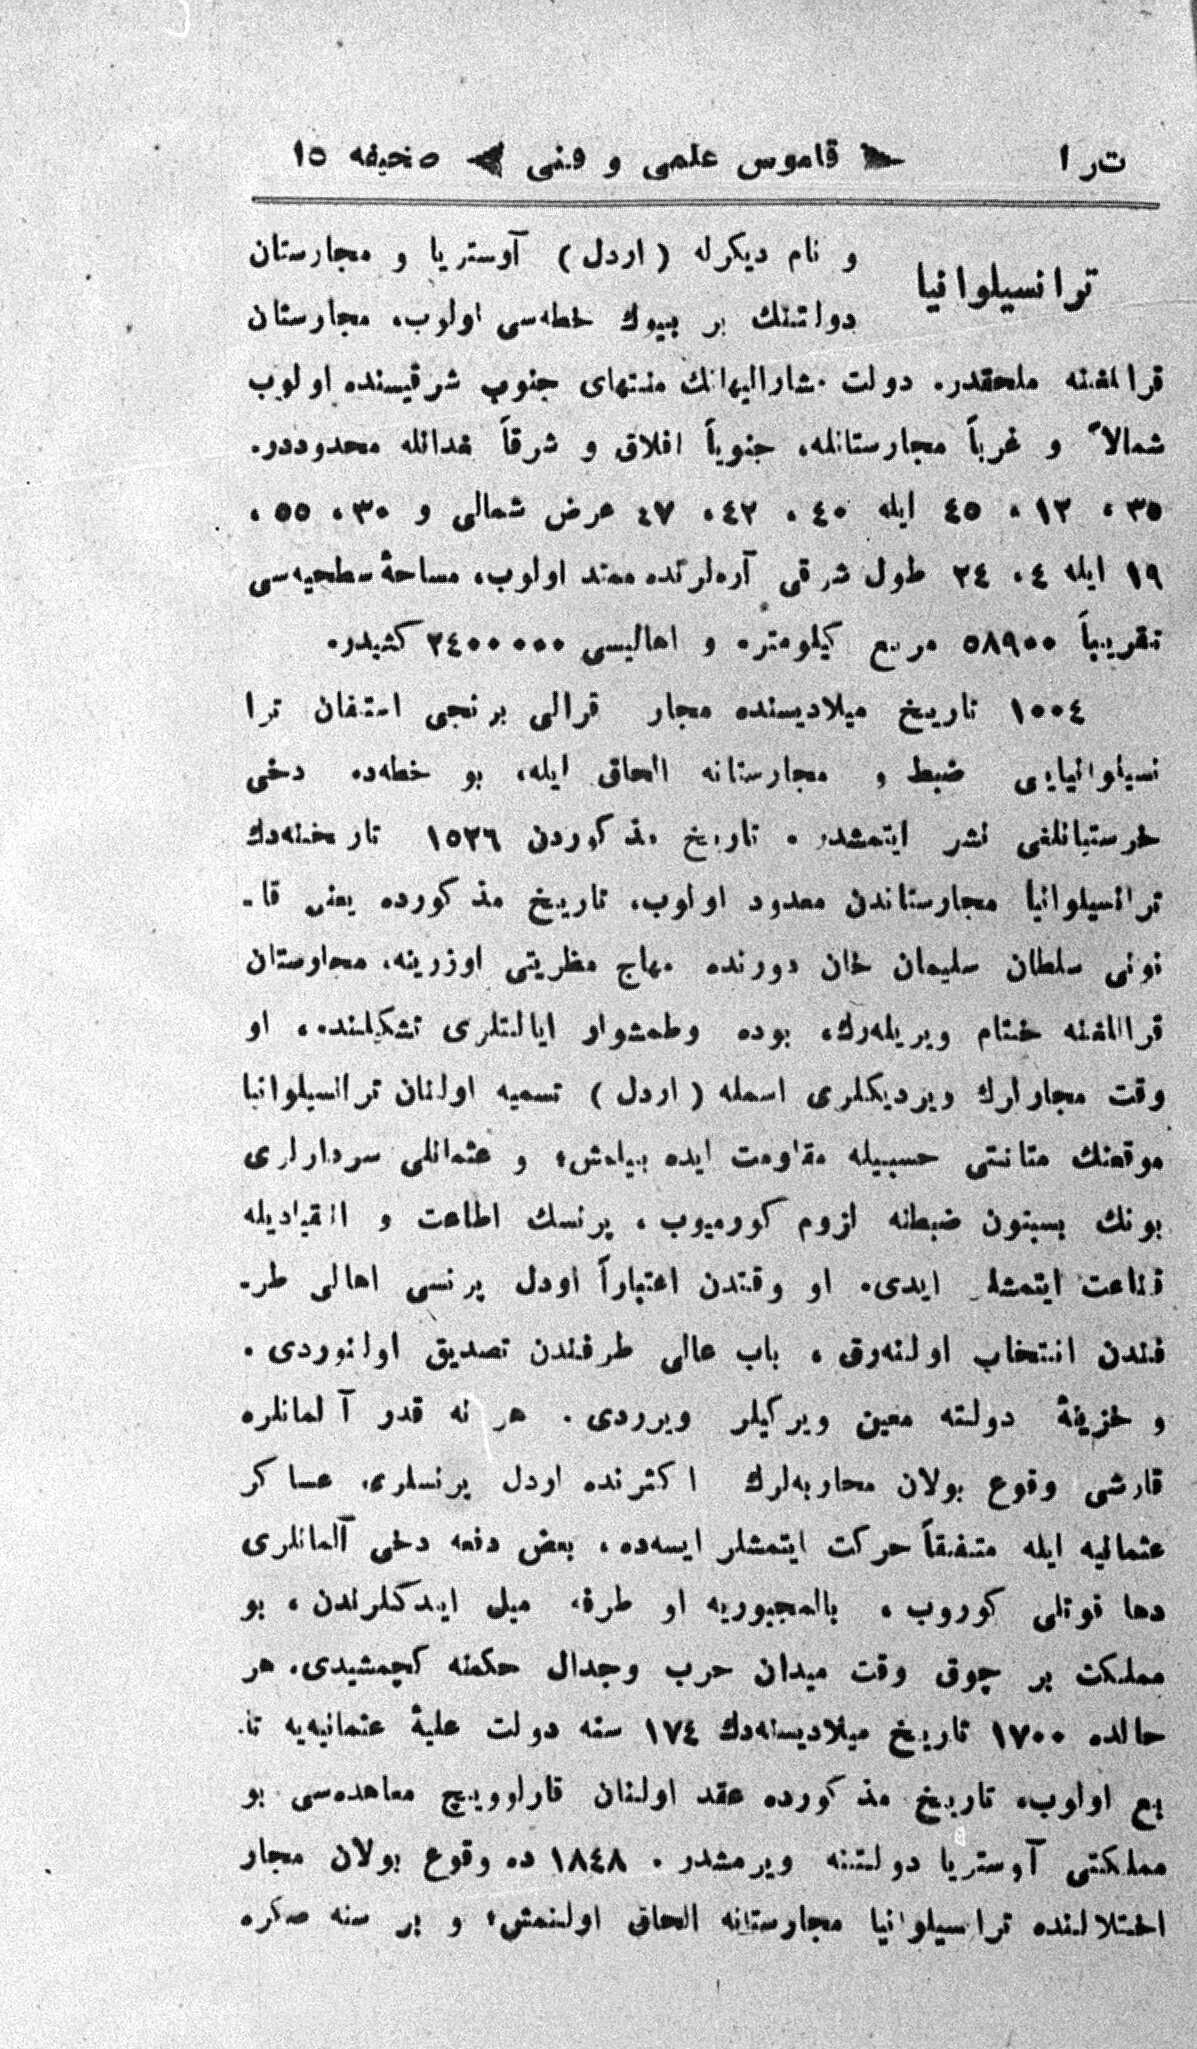 ت ر ا قاموس علمی و فنی صحیفه ١٥
ترانسیلوانیا
و نام دیکرله ( اردل ) آوستریا و مجارستان
دولتنك بر بیوك خطه‌سی اولوب، مجارستان
قرالغنه ملحقدر. دولت مشارالیهانك منتهای جنوب شرقیسنده اولوب
شمالاً و غرباً مجارستانله، جنوباً افلاق و شرقاً بغدانله محدوددر.
٣٥ ، ١٢ ، ٤٥ ایله ٤٠ ، ٤٢ ، ٤٧ عرض شمالی و ٣٠ ، ٥٥ ،
١٩ ایله ٤ ، ٢٤ طول شرقی آره‌لرنده ممتد اولوب، مساحۀ سطحیه‌سی
تقریباً ٥٨٩٠٠ مربع کیلومتره و اهالیسی ٢٤٠٠٠٠٠ کشیدر.
١٠٠٤ تاریخ میلادیسنده مجار قرالی برنجی استفان ترا
نسیلوانیایی ضبط و مجارستانه الحاق ایله، بو خطه‌ده دخی
خرستیانلغی نشر ایتمشدر . تاریخ مذکوردن ١٥٢٦ تاریخنه‌دك
ترانسیلوانیا مجارستاندن معدود اولوب، تاریخ مذکورده یعنی قا-
نونی سلطان سلیمان خان دورنده مهاج مظفریتی اوزرینه، مجارستان
قراللغنه ختام ویریله‌رك، بوده وطمشوار ایالتلری تشکیلنده، او
وقت مجارلرك ویردیکلری اسمله ( اردل ) تسمیه اولنان ترانسیلوانیا
موقعنك متانتی حسبیله مقاومت ایده بیلمش، و عثمانلی سردارلری
بونك بسبتون ضبطنه لزوم کورمیوب ، پرنسك اطاعت و انقیادیله
قناعت ایتمشلر ایدی. او وقتدن اعتباراً اردل پرنسی اهالی طر-
فندن انتخاب اولنه‌رق ، باب عالی طرفندن تصدیق اولنوردی .
و خزینۀ دولته معین ویرکیلر ویرردی . هر نه قدر آلمانلره
قارشی وقوع بولان محاربه‌لرك اکثرنده اردل پرنسلری، عساکر
عثمانیه ایله متفقاً حرکت ایتمشلر ایسه‌ده ، بعض دفعه دخی آلمانلری
دها قوتلی کوروب ، بالمجبوریه او طرفه میل ایدکلرندن ، بو
مملکت بر چوق وقت میدان حرب وجدال حکمنه کچمشیدی. هر
حالده ١٧٠٠ تاریخ میلادیسنه‌دك ١٧٤ سنه دولت علیۀ عثمانیه‌یه تا-
بع اولوب، تاریخ مذکورده عقد اولنان قارلوویچ معاهده‌سی بو
مملکتی آوستریا دولتنه ویرمشدر . ١٨٤٨ ده وقوع بولان مجار
اختلالنده ترانسیلوانیا مجارستانه الحاق اولنمش، و بر سنه صکره